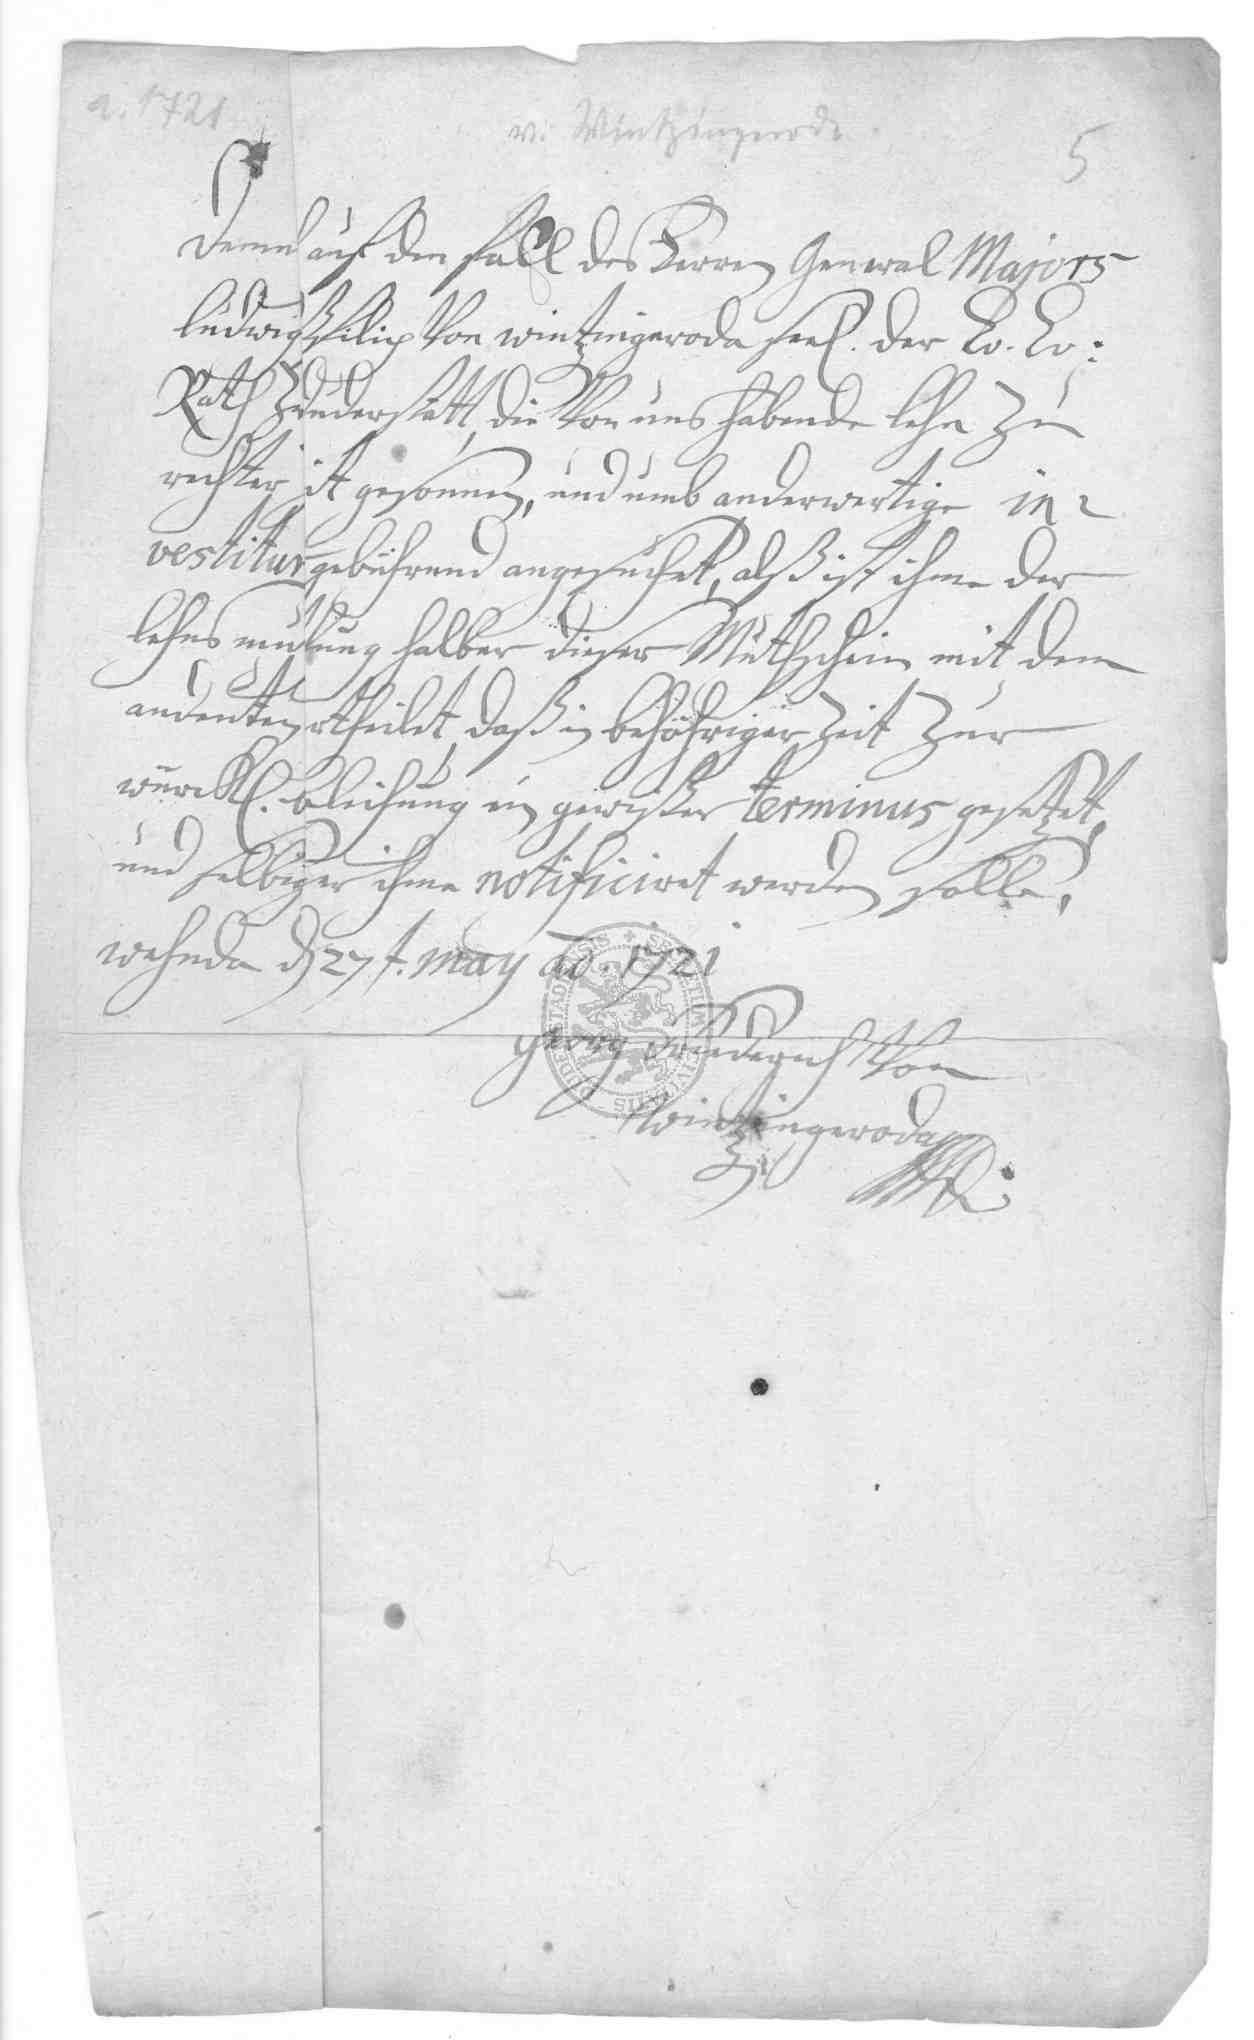 a. 1721
v. Wintzingerode
5
Demnach auf den Fall des Herren General Majors
ludwig Philip Von wintzingeroda seel. der
Rath zu duderstatt, die Von uns habende lehn zu
rechter Zeit gesonnen, und umb anderwertige in-
vestitur gebührend angesuchet, alß ist ihme der
lehns muthung halber dieser Muthschein mit dem
andeuten ertheilet, daß in behöhriger Zeit zur
würckl. beleihung ein gewißer terminus gesetzet,
und selbiger ihme notificiret werden solle,
wehnda d 27t. may ao. 1721
georg Friederich Von
Wintzingeroda